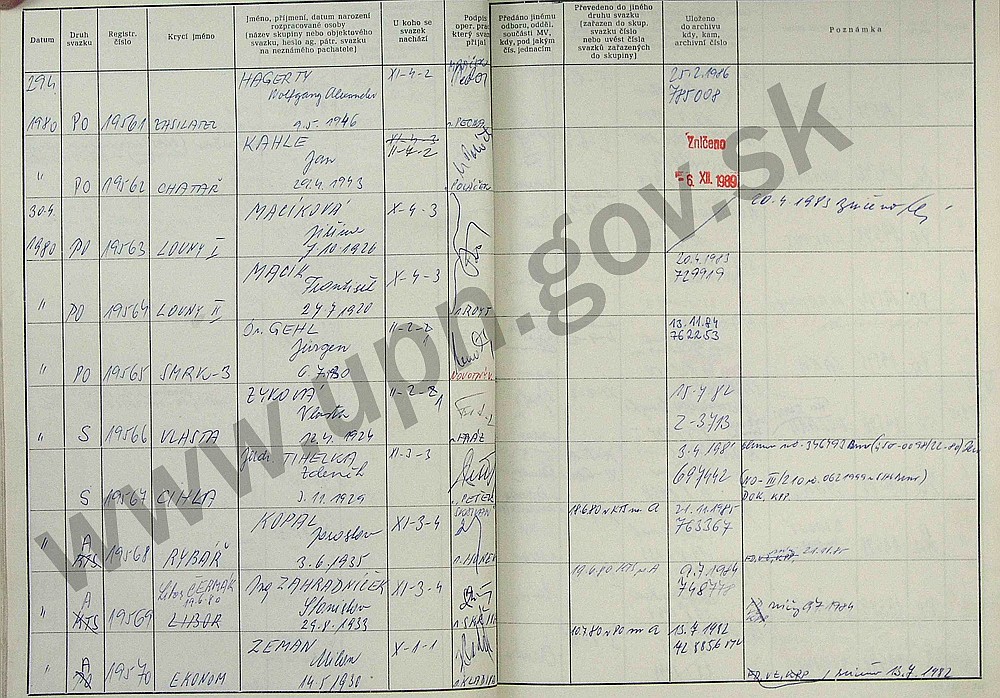 Datum
Druh svazku
Registr. číslo
Krycí jméno
Jméno, příjmení, datum narození
rozpracované osoby
(název skupiny nebo objektového
svazku, heslo ag. pátr. svazku
na neznámého pachatele)
U koho se
svazek
nachází
Podpis
oper. prac.
který svaz.
přijal
Předáno jinému
odboru, odděl.
součásti MV,
kdy, pod jakým
čís. jednacím
Převedeno do jiného
druhu svazku
(zařazen do skup.
svazku číslo
nebo uvést čísla
svazků zařazených
do skupiny)
Uloženo
do archívu
kdy, kam,
archivní číslo
Poznámka
29.4. HAGERTY XI-4-2 25.2.1986
Wolfgang Alexander 785008
1980 PO 19561 ZASILATEL 9.5.1946
KAHLE XI-4-3 Zničeno
Jan II-4-2
" PO 19562 CHATAŘ 29.4.1943 - 6. XII. 1989
30.4. MACÍKOVÁ X-4-3 20.4.1983 zničeno
Jiřina
1980 PO 19563 LOVNY I 7.10.1926
MACÍK X-4-3 20.4.1983
František 729919
" PO 19564 LOVNY II 24.7.1920
Dr. GEHL II-2-2 13.11.84
Jürgen 1 762253
" PO 19565 SMRK-3 6.7.1930 NOVOTNÝ
ZYKOVÁ II-2-2 15.4.82
Vlasta 1 Z-3713
" S 19566 VLASTA 12.4.1924
Judr. TIHELKA XI-3-3 3.4.1981
Zdeněk 697442
S 19567 CIHLA 3.11.1929 PETER DOK. KPP.
KOPAL XI-3-4 18.6.80 v KTS na A 21.11.1985
Jaroslav 763367
" A KTS 19568 RYBÁŘ 3.6.1935 21.11.85
ČERMÁK Ing ZAHRADNÍČEK XI-3-4 19.6.80 KTS v A 9.7.1984
19.6.80 Stanislav 748778
" A KTS 19569 LIBOR 29.8.1933 9.7.1984
ZEMAN X-1-1 10.7.80 v PO na A 13.7.1982
Milan
" A 19570 EKONOM 14.5.1930 13.7.1982
www.upn.gov.sk